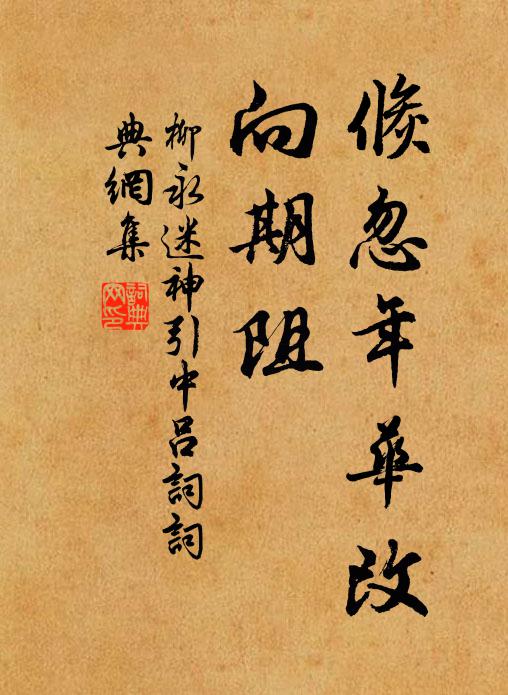 倏忽年華改
向期阻
柳永迷神引中呂詞詞
典網集
詞典網印